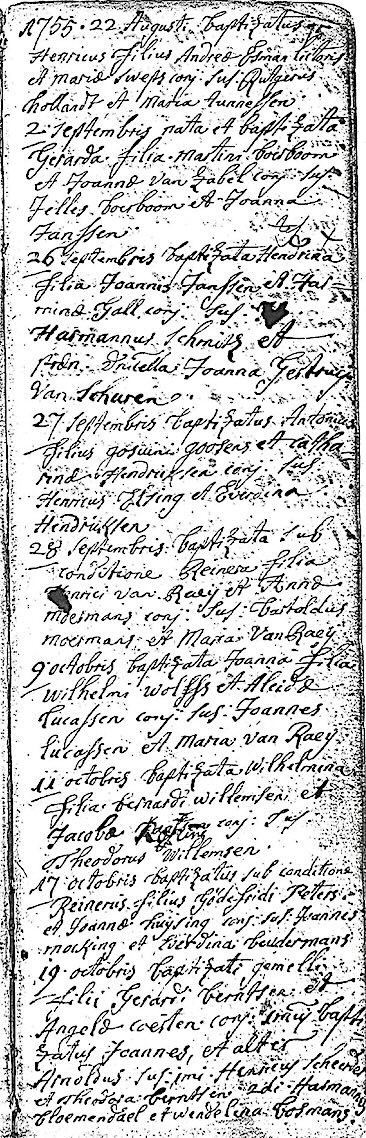 1755. 22 Augusti baptizatus
Henricus filius Andreæ
et mariæ conj: sus: Rutgerus
hollandt et Maria Tunnessen
2 Septembris nata et baptizata
Gerarda filia martini boesboom
et Joannæ van Zabel conj: sus:
Jelles boesboom et Joanna
Janssen.
26 Septembris baptizata Hendrina
filia Joannis Janssen et Har-
minæ Gall conj: sus:
Harmannus Schmitz et
Joanna
van Schuren.
27 Septembris baptizatus Antonius
filius gosuini goossens et catha-
rinæ Hendricksen conj: sus:
Henricus Elsing et Everdina
Hendricksen
28 Septembris baptizata sub
conditione Reinera filia
van Raey et Annæ
moesmans conj: sus: bartoldus
moesmans et Maria van Raey
9 octobris baptizata Joanna filia
Wilhelmi Wolffs et Aleidæ
Lucassen conj: sus: Joannes
Lucassen et Maria van Raey.
11 octobris baptizata Wilhelmina
filia bernardi willemsen et
Jacobæ conj: sus:
Theodorus Willemsen.
17 octobris baptizatus sub conditione
Reinerus filius Godefridi Peters
et Joannæ huysing conj: sus: Joannes
mocking et beudermans
19 octobris baptizati gemelli
filii Gerardi berntsen et
Angelæ coesten conj: unus bapti-
zatus Joannes, et alter
Arnoldus sus: imi Henricus
et Theodora berntsen 2di Harmannus
bloemendael et wendelina bosmans.